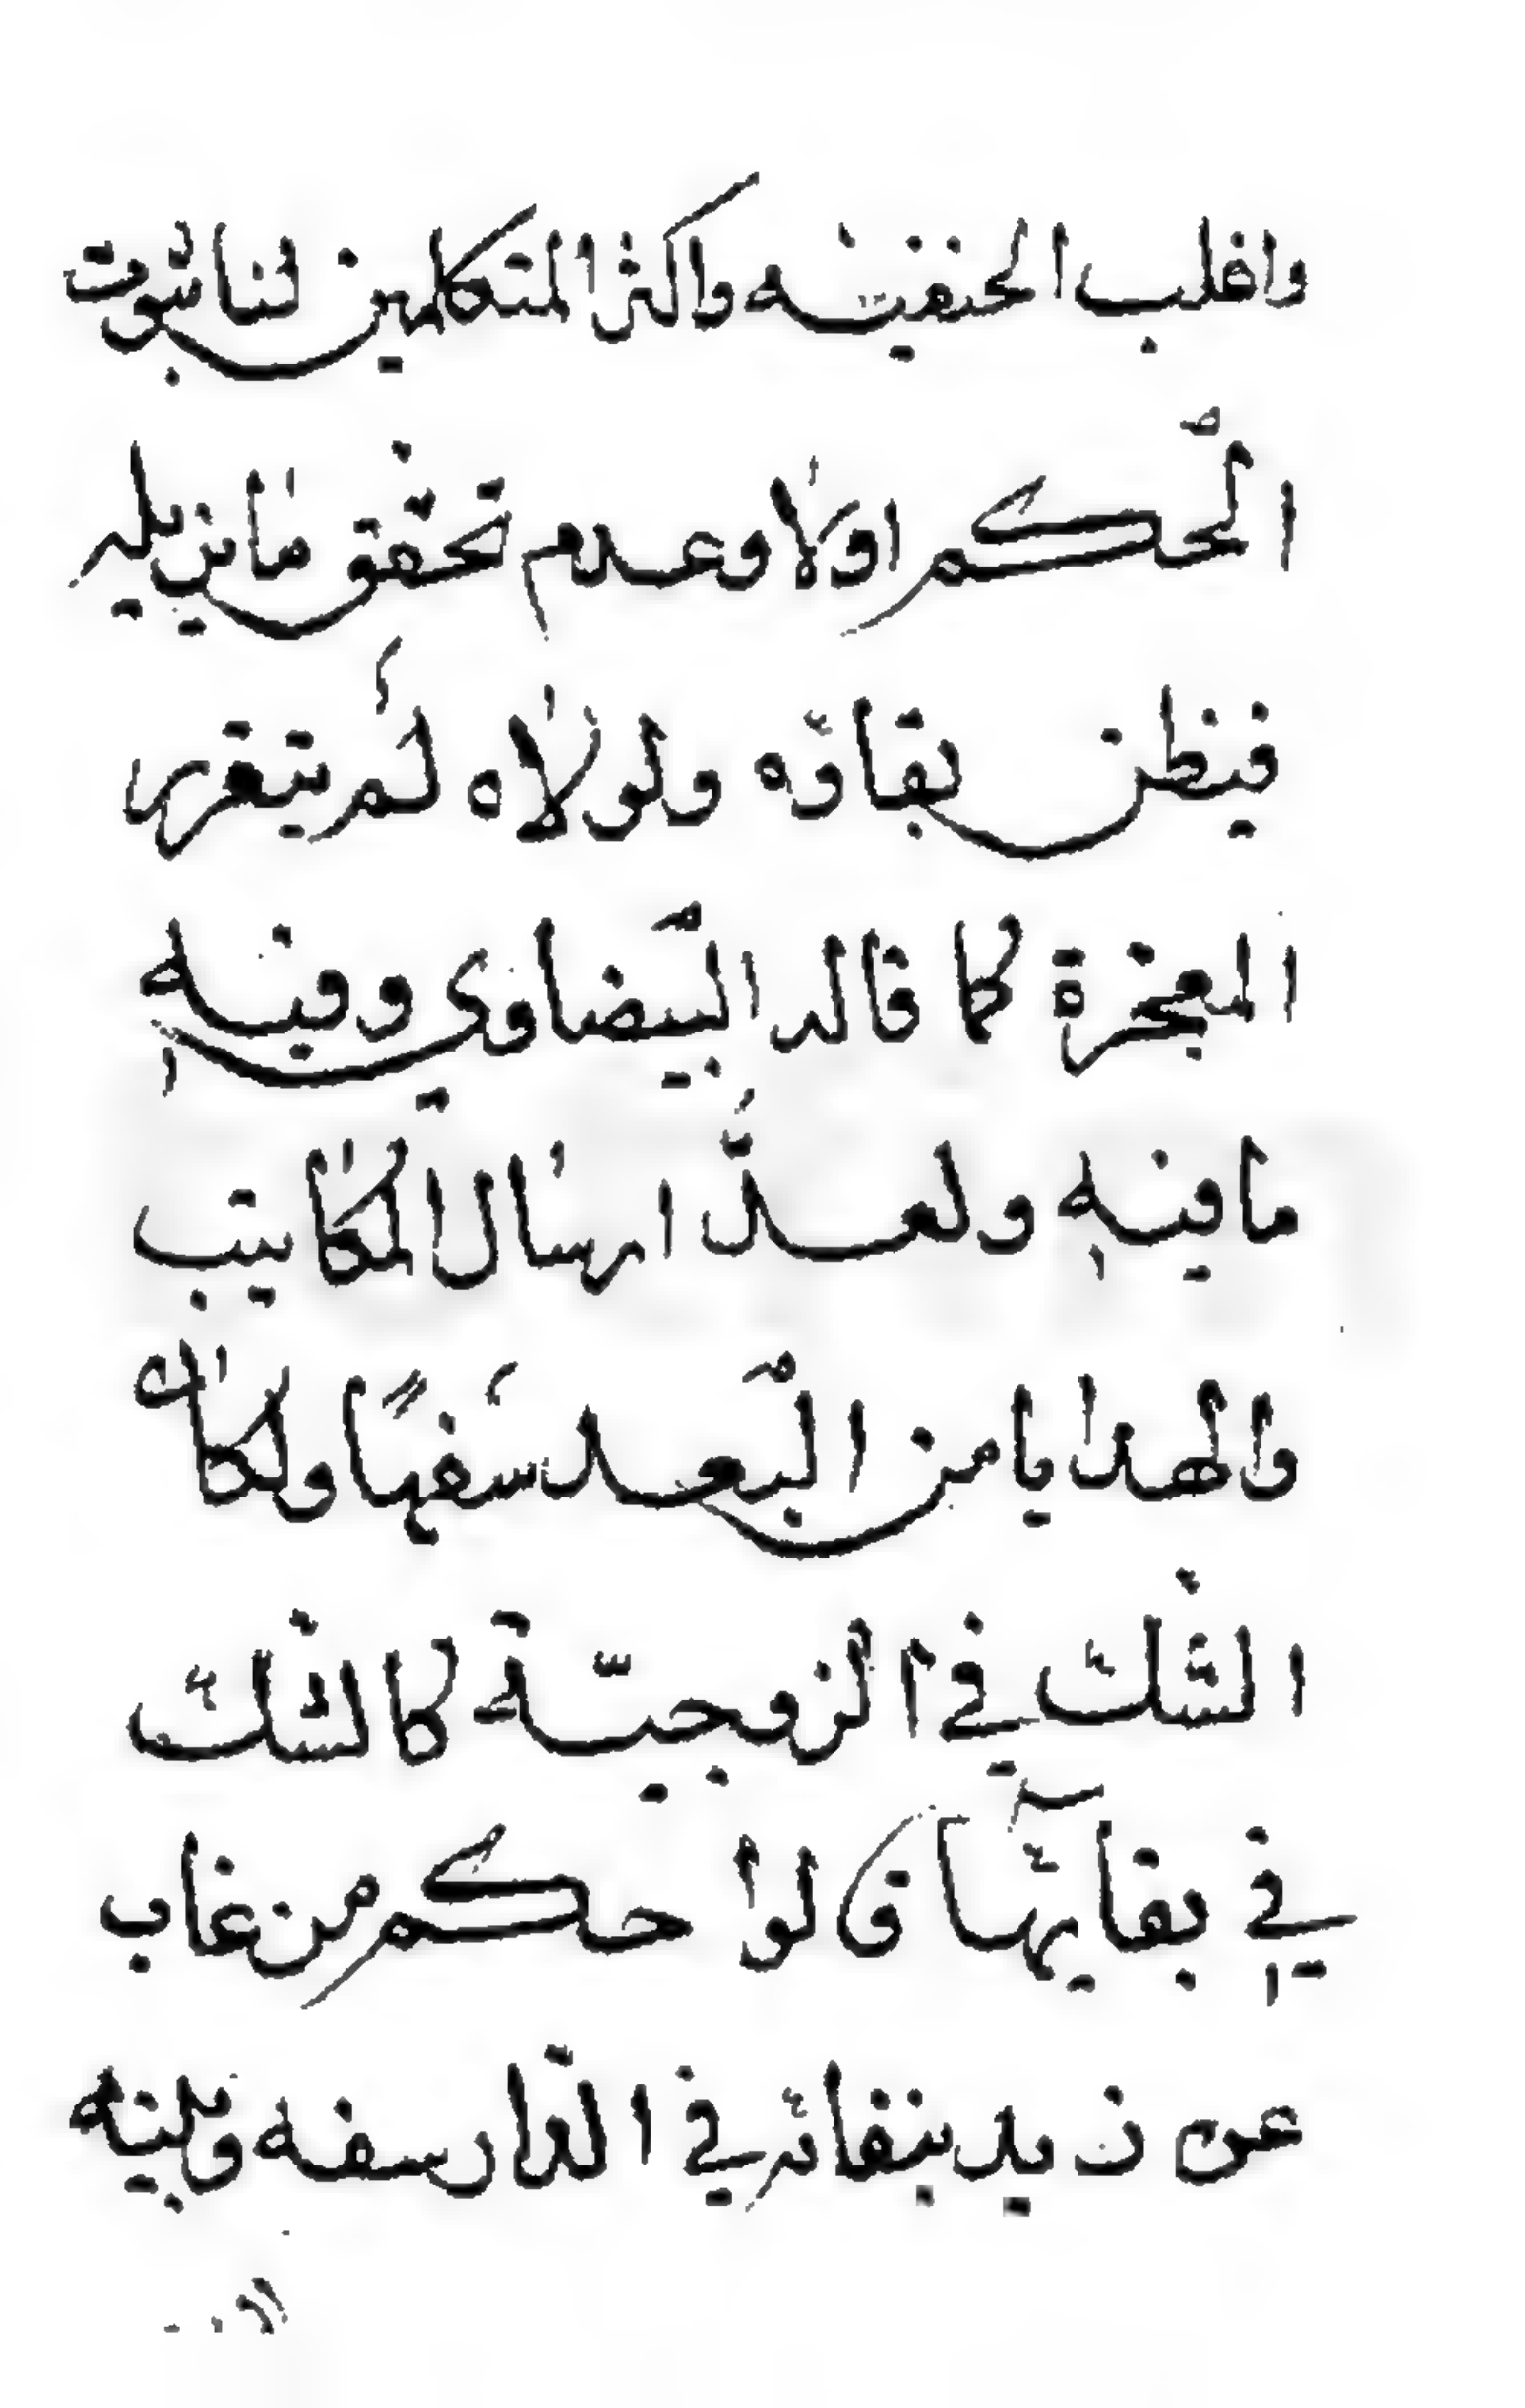 واغلب الحنفيه واكثر المتكلمين لنا ثبوت
الحكم اولا وعدم تحقق ما يزيله
فيظن بقاؤه ولولاه لم يتقرر
المعجزة كما قاله البيضاوي وفيه
ما فيه ولعدّ ارسال المكاتيب
والهدايا من البعد سفهًا ولكان
الشك في الزوجيّة كالشك
في بقايٓها قالوا حكم من غاب
عن زيد بنفائه في الدار سفه وبينه